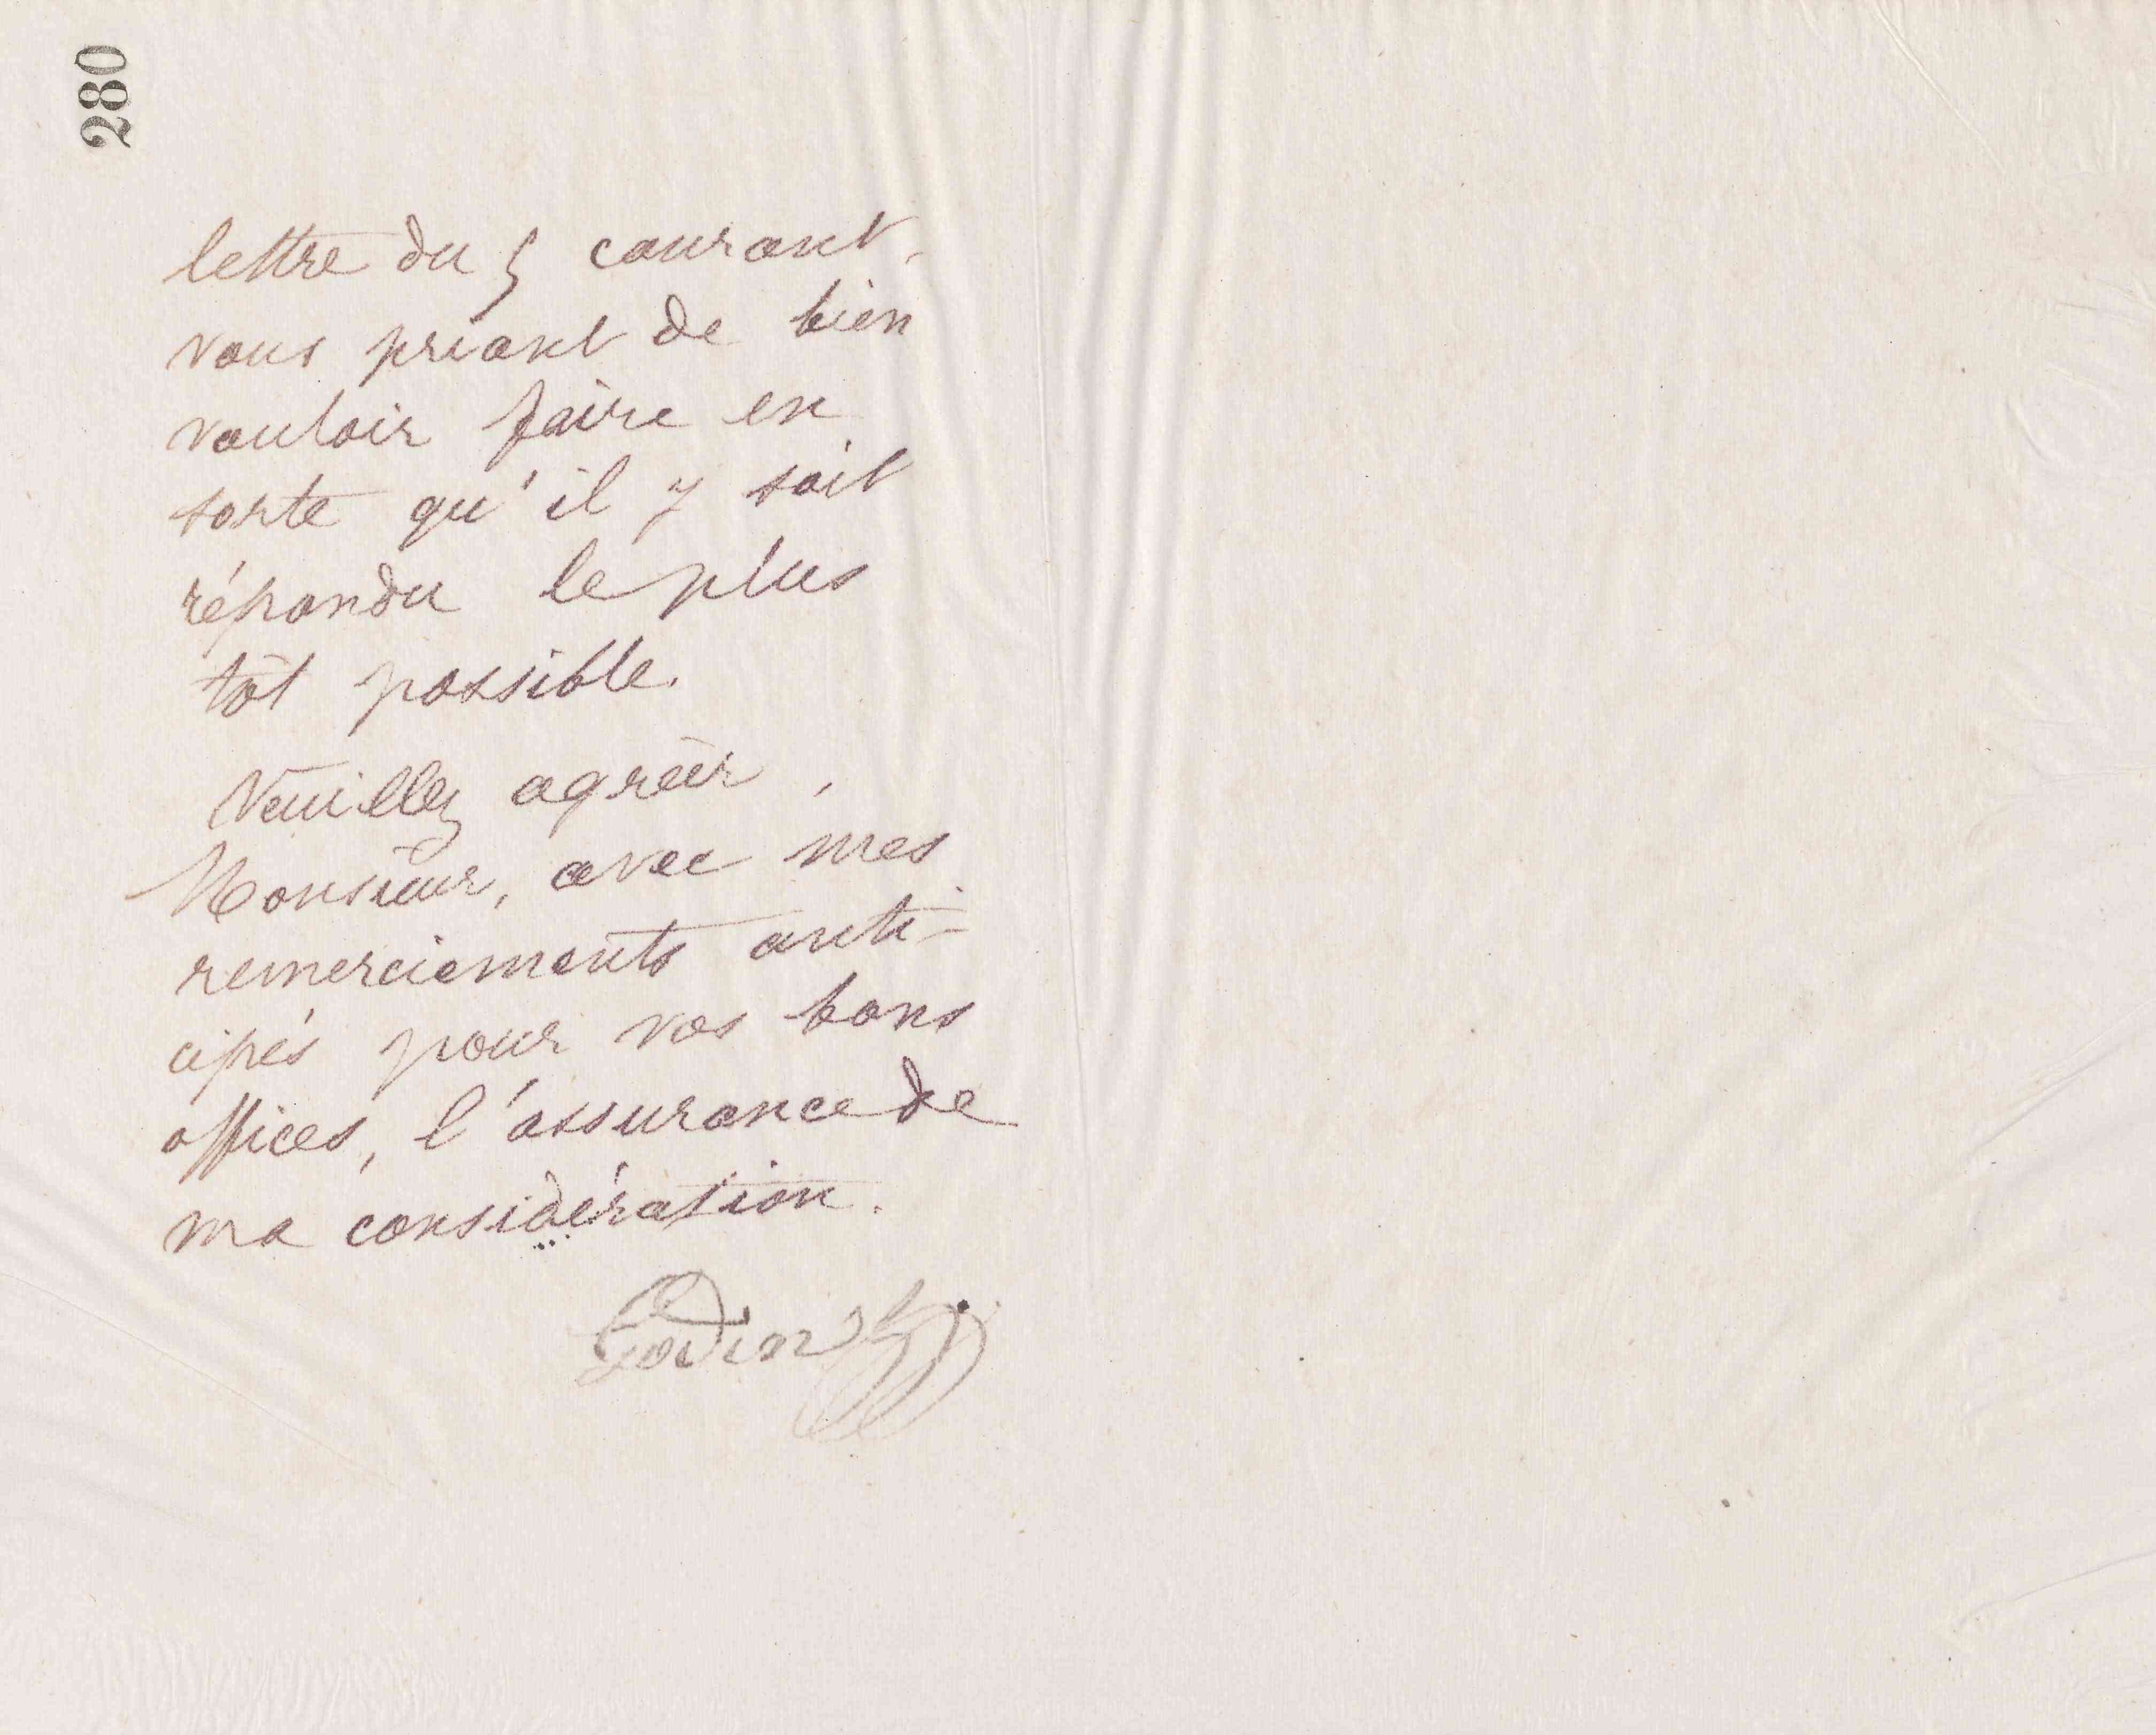 280
lettre du 5 courant,
vous priant de bien
vouloir faire en
sorte qu'il y soit
répondu le plus
tôt possible.
Veuillez agréer,
Monsieur, avec mes
remerciements anti-
cipés pour vos bons
offices, l'assurance de
ma considération.
Godin